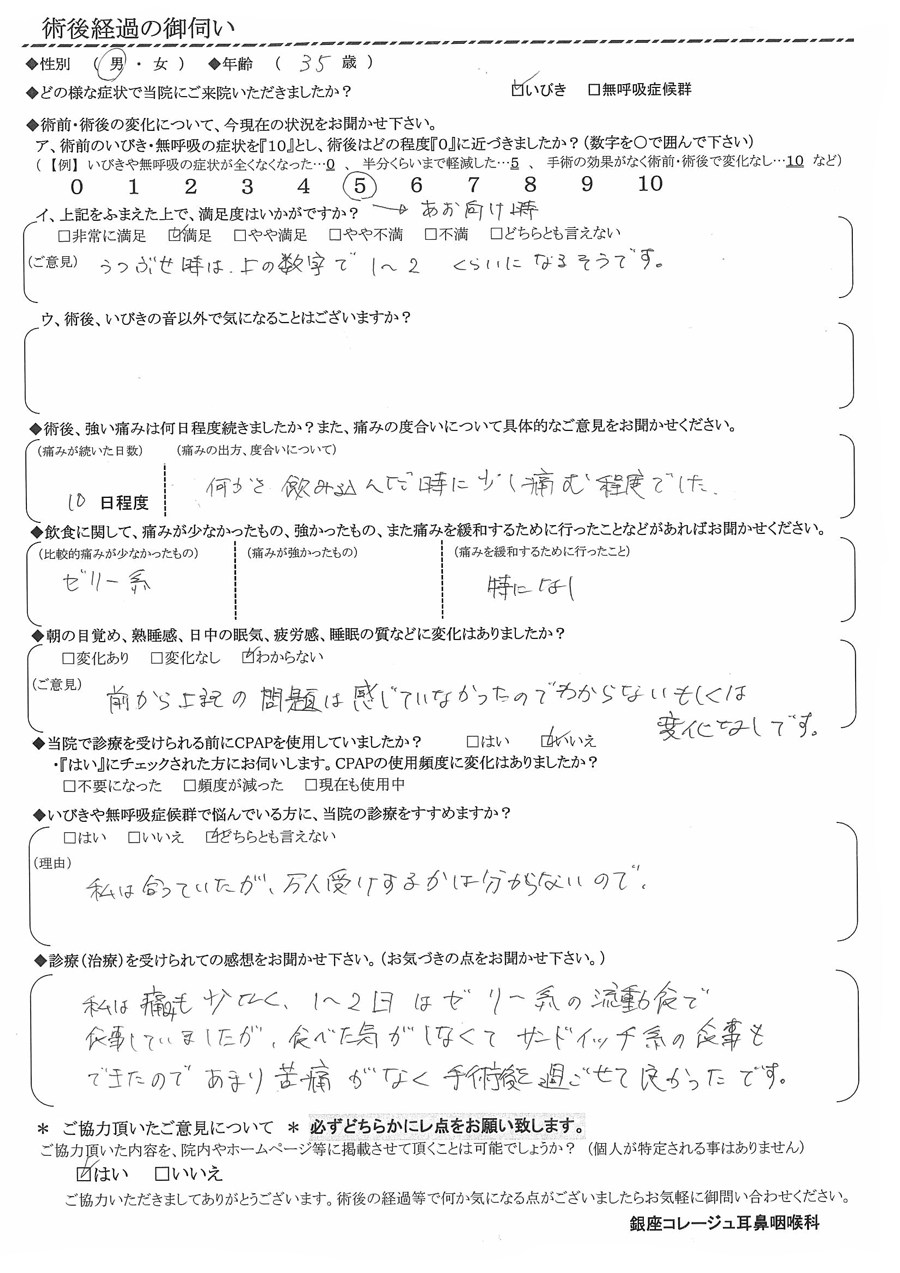 術後経過の御伺い
◆性別　（ 男 ・ 女 ）　◆年齢　（　35 歳 ）
◆どの様な症状で当院にご来院いただきましたか？　☑いびき　□無呼吸症候群
◆術前・術後の変化について、今現在の状況をお聞かせ下さい。
ア、術前のいびき・無呼吸の症状を『10』とし、術後はどの程度『0』に近づきましたか？（数字を〇で囲んで下さい）
（【例】いびきや無呼吸の症状が全くなくなった…0 、 半分くらいまで軽減した…5 、 手術の効果がなく術前・術後で変化なし…10 など）
0　1　2　3　4　⑤　6　7　8　9　10
イ、上記をふまえた上で、満足度はいかがですか？　→ あお向け時
□非常に満足　☑満足　□やや満足　□やや不満　□不満　□どちらとも言えない
（ご意見）　うつぶせ時は、上の数字で 1〜2 くらいになるそうです。
ウ、術後、いびきの音以外で気になることはございますか？
◆術後、強い痛みは何日程度続きましたか？また、痛みの度合いについて具体的なご意見をお聞かせください。
（痛みが続いた日数）　（痛みの出方、度合いについて）
10 日程度　何かを飲み込んだ時に少し痛む程度でした。
◆飲食に関して、痛みが少なかったもの、強かったもの、また痛みを緩和するために行ったことなどがあればお聞かせください。
（比較的痛みが少なかったもの）　（痛みが強かったもの）　（痛みを緩和するために行ったこと）
ゼリー系　特になし
◆朝の目覚め、熟睡感、日中の眠気、疲労感、睡眠の質などに変化はありましたか？
□変化あり　□変化なし　☑わからない
（ご意見）　前から上記の問題は感じていなかったのでわからないもしくは
変化なしです。
◆当院で診療を受けられる前にCPAPを使用していましたか？　□はい　☑いいえ
・『はい』にチェックされた方にお伺いします。CPAPの使用頻度に変化はありましたか？
□不要になった　□頻度が減った　□現在も使用中
◆いびきや無呼吸症候群で悩んでいる方に、当院の診療をすすめますか？
□はい　□いいえ　☑どちらとも言えない
（理由）
私は合っていたが、万人受けするかは分からないので、
◆診療（治療）を受けられての感想をお聞かせ下さい。（お気づきの点をお聞かせ下さい。）
私は痛みも少なく、1〜2日はゼリー系の流動食で
食事していましたが、食べた気がしなくてサンドイッチ系の食事も
できたのであまり苦痛がなく手術後を過ごせて良かったです。
＊ ご協力頂いたご意見について ＊ 必ずどちらかにレ点をお願い致します。
ご協力頂いた内容を、院内やホームページ等に掲載させて頂くことは可能でしょうか？（個人が特定される事はありません）
☑はい　□いいえ
ご協力いただきましてありがとうございます。術後の経過等で何か気になる点がございましたらお気軽に御問い合わせください。
銀座コレージュ耳鼻咽喉科